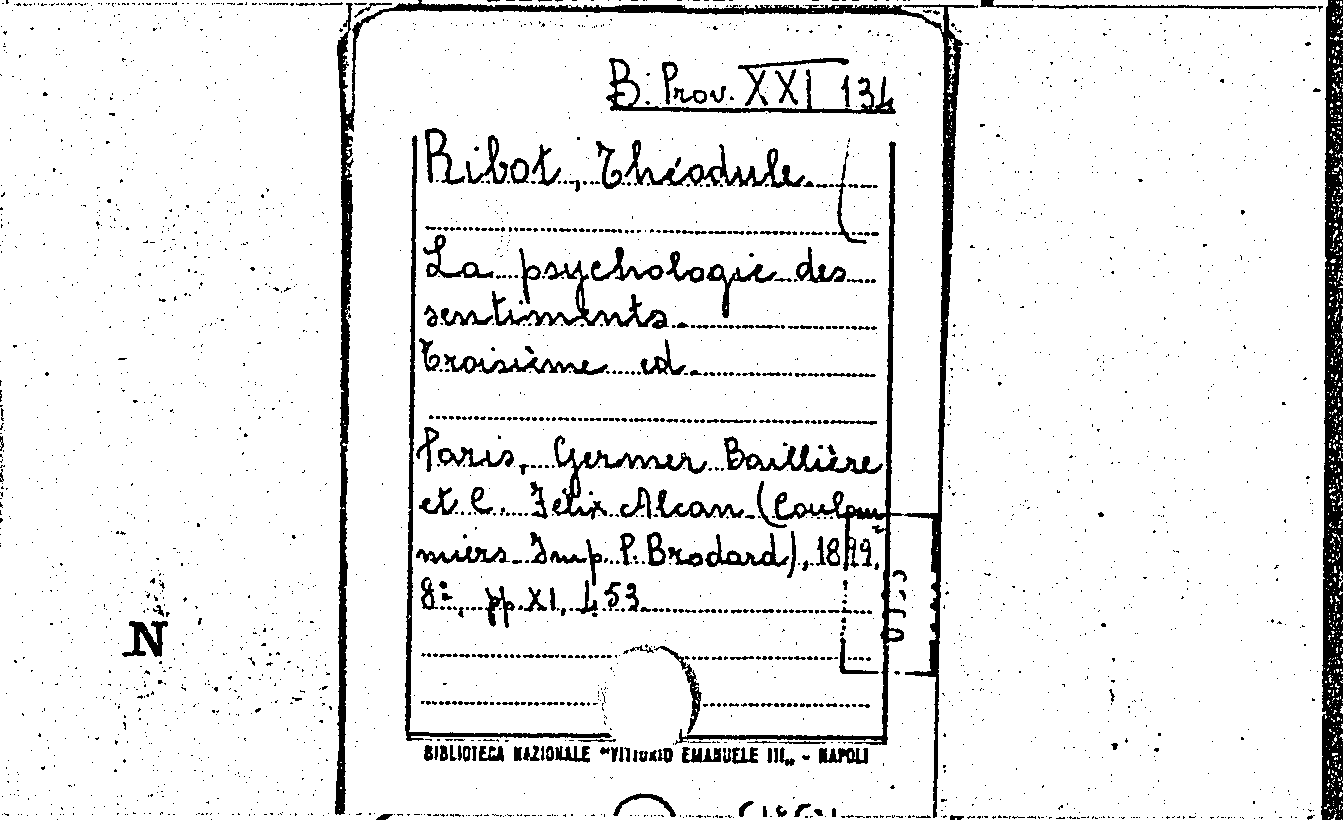 B. Prov. XXI 134
Ribot, Théodule.
La psychologie des
sentiments.
Troisième ed.
Paris, Germer Baillière
et C. Félix Alcan (Coulom-
miers. Imp. P. Brodard), 1899.
8º, pp. XI, 453.
N
BIBLIOTECA NAZIONALE "VITTORIO EMANUELE III„ - NAPOLI